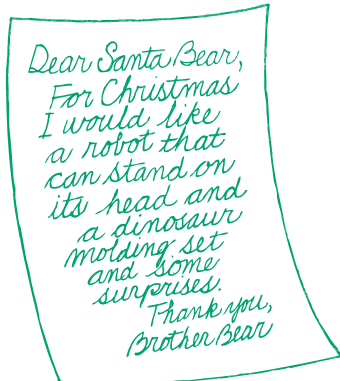 Dear Santa Bear,
For Christmas
I would like
a robot that
can stand on
its head and
a dinosaur
molding set
and some
surprises.
Thank you,
Brother Bear